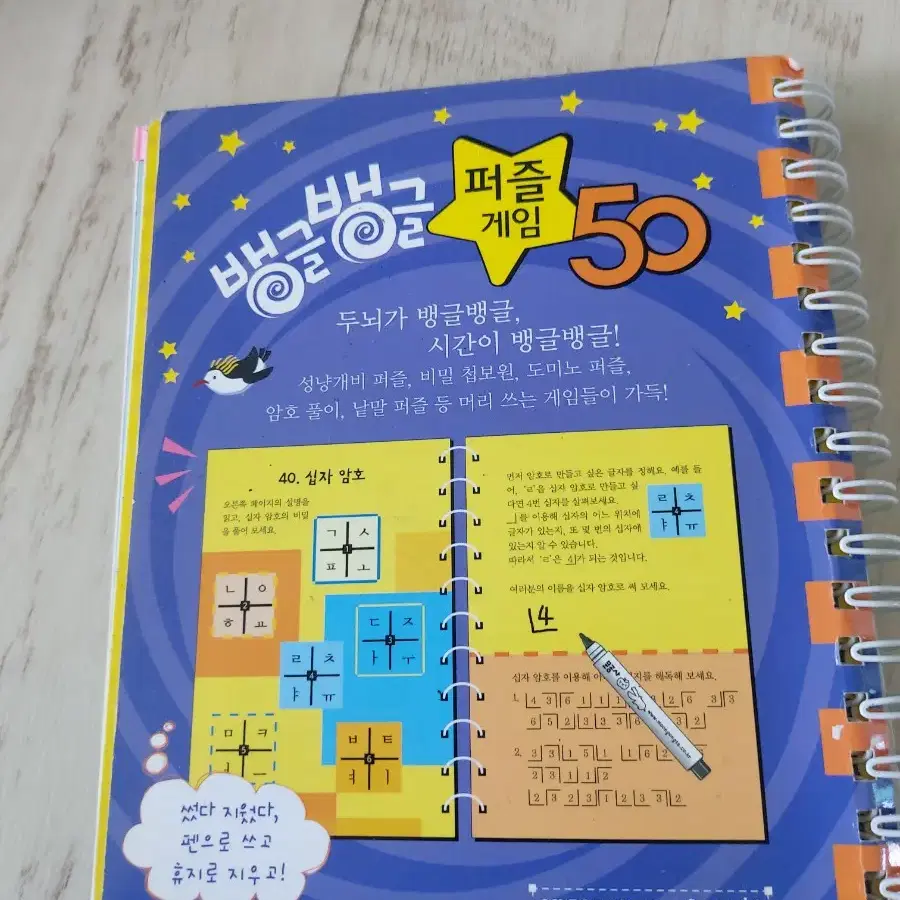 뱅글뱅글
퍼즐
게임
50
두뇌가 뱅글뱅글,
시간이 뱅글뱅글!
성냥개비 퍼즐, 비밀 첩보원, 도미노 퍼즐,
암호 풀이, 낱말 퍼즐 등 머리 쓰는 게임들이 가득!
40. 십자 암호
오른쪽 페이지의 설명을
읽고, 십자 암호의 비밀
을 풀어 보세요.
ㄱ ㅅ
1
ㅍ ㅗ
ㄴ ㅇ
2
ㅎ ㅛ
ㄷ ㅈ
3
ㅏ ㅜ
ㄹ ㅊ
4
ㅑ ㅠ
ㅁ ㅋ
5
ㅓ ㅡ
ㅂ ㅌ
6
ㅕ ㅣ
먼저 암호로 만들고 싶은 글자를 정해요. 예를 들
어, 'ㄹ'을 십자 암호로 만들고 싶
다면 4번 십자를 살펴보세요.
를 이용해 십자의 어느 위치에
글자가 있는지, 또 몇 번의 십자에
있는지 알 수 있습니다.
따라서 'ㄹ'은 4가 되는 것입니다.
ㄹ ㅊ
4
ㅑ ㅠ
여러분의 이름을 십자 암호로 써 보세요.
4
십자 암호를 이용해 해독해 보세요.
1. 4 3 6 1 1 3 2 6 3 3
6 5 2 3 3 3 2
2. 3 3 1 5 1 1 6 2
2 3 1 1 2
2 3 2 3 1 2 3 3 2
썼다 지웠다,
펜으로 쓰고
휴지로 지우고!